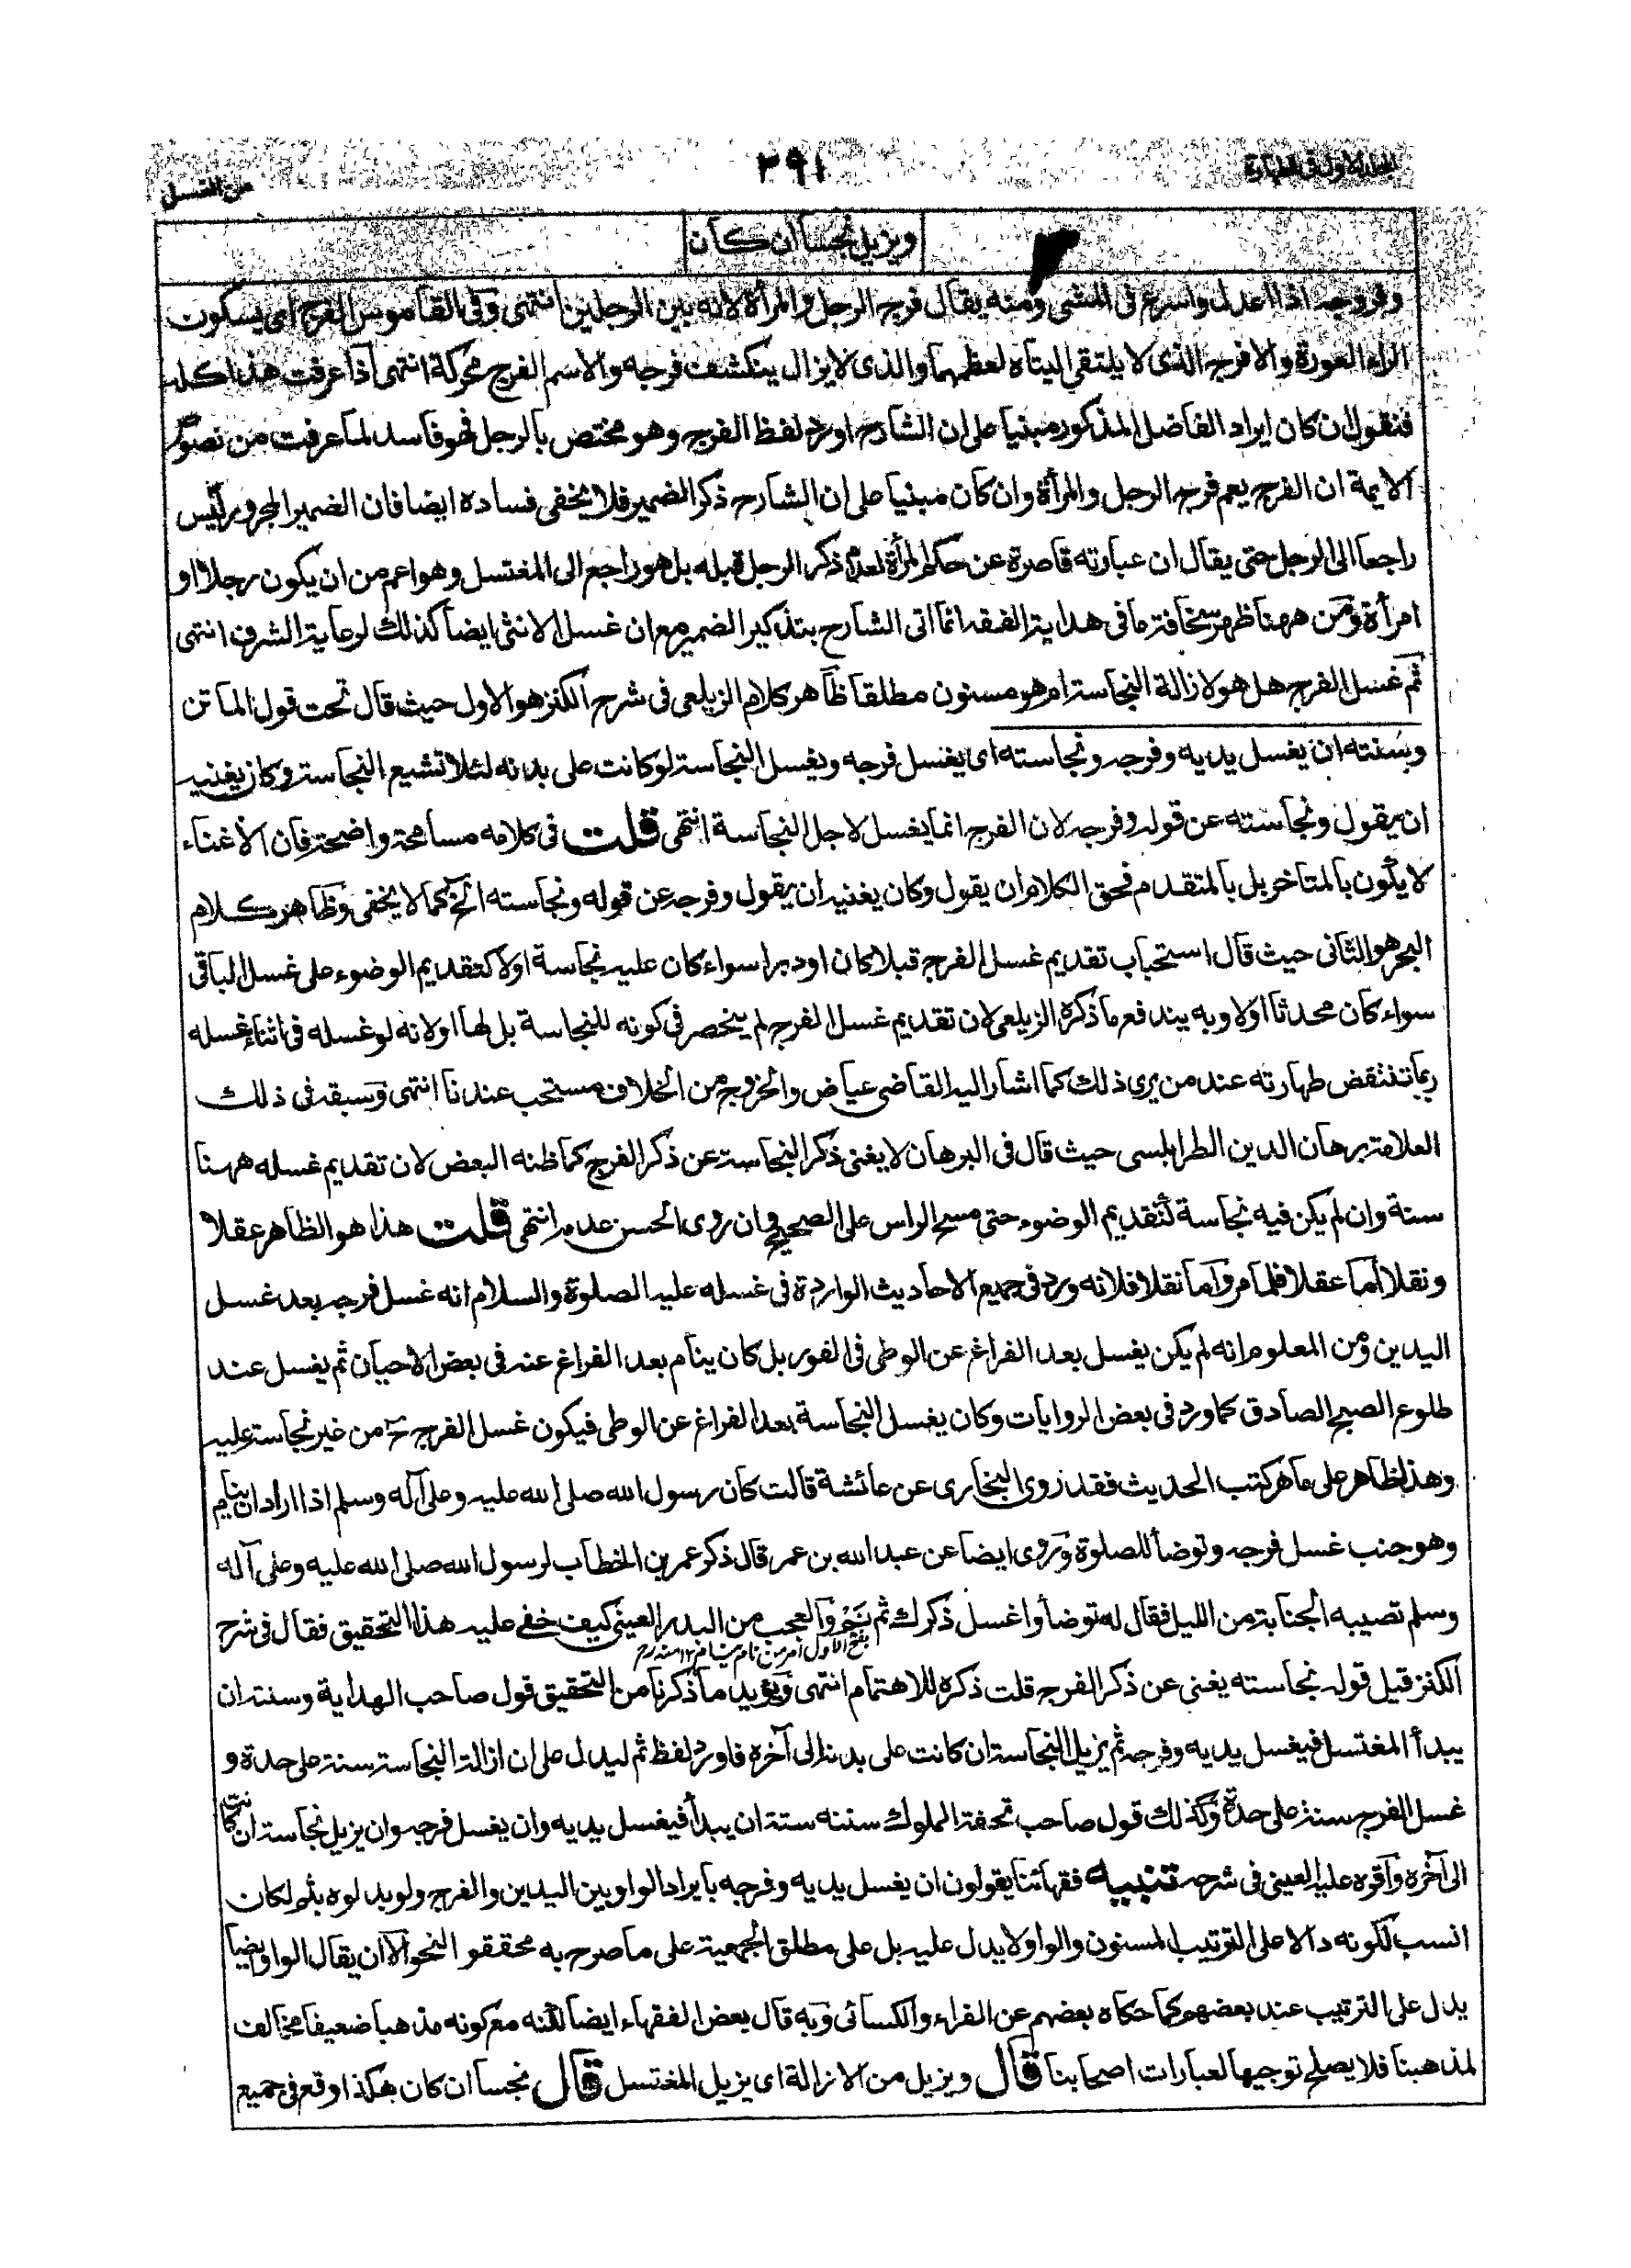 المجلد الاول فى الطهارة
٣٩١
من الغسل
ويزيل نجسا ان كان
وفروجه اذا اعدل واسرع فى المشى ومنه يقال فرج الرجل والمرأة لانه بين الرجلين انتهى وفى القاموس الفرج اى بسكون
الراء العورة والافرج الذى لا يلتقى اليتاه لعظمهما والذى لا يزال ينكشف فرجه والاسم الفرج محركة انتهى اذا عرفت هذا كله
فنقول ان كان ايراد الفاضل المذكور مبنيا على ان الشارح اورد لفظ الفرج وهو مختص بالرجل فهو فاسد لما عرفت من نصوص
الايمة ان الفرج يعم فرج الرجل والمرأة وان كان مبنيا على ان الشارح ذكر الضمير فلا يخفى فساده ايضا فان الضمير المجرور ليس
راجعا الى الرجل حتى يقال ان عبارته قاصرة عن حكم المرأة لعدم ذكر الرجل قبله بل هو راجع الى المغتسل وهو اعم من ان يكون رجلا او
امرأة ومن ههنا ظهر سخافة ما فى هداية الفقه انما اتى الشارح بتذكير الضمير مع ان غسل الانثى ايضا كذلك لرعاية الشرف انتهى
ثم غسل الفرج هل هو لازالة النجاسة ام هو مسنون مطلقا ظاهر كلام الزيلعى فى شرح الكنز هو الاول حيث قال تحت قول الماتن
وسنته ان يغسل يديه وفرجه ونجاسته اى يغسل فرجه ويغسل النجاسة لو كانت على بدنه لئلا تشيع النجاسة وكان يغنيه
ان يقول ونجاسته عن قوله وفرجه لان الفرج انما يغسل لاجل النجاسة انتهى قلت فى كلامه مسامحة واضحة فان الاغناء
لا يكون بالمتاخر بل بالمتقدم فحق الكلام ان يقول وكان يغنيه ان يقول وفرجه عن قوله ونجاسته الخ كما لا يخفى وظاهر كلام
البحر هو الثانى حيث قال استحباب تقديم غسل الفرج قبلا كان او دبرا سواء كان عليه نجاسة اولا كتقديم الوضوء على غسل الباقى
سواء كان محدثا اولا وبه يندفع ما ذكره الزيلعى لان تقديم غسل الفرج لم ينحصر فى كونه للنجاسة بل لها اولانه لو غسله فى اثناء غسله
ربما تنتقض طهارته عند من يرى ذلك كما اشار اليه القاضى عياض والخروج من الخلاف مستحب عندنا انتهى وسبقه فى ذلك
العلامة برهان الدين الطرابلسى حيث قال فى البرهان لا يغنى ذكر النجاسة عن ذكر الفرج كما ظنه البعض لان تقديم غسله ههنا
سنة وان لم يكن فيه نجاسة كتقديم الوضوء حتى مسح الراس على الصحيح وان روى الحسن عدمه انتهى قلت هذا هو الظاهر عقلا
ونقلا اما عقلا فلما مر واما نقلا فلانه ورد فى جميع الاحاديث الواردة فى غسله عليه الصلوة والسلام انه غسل فرجه بعد غسل
اليدين ومن المعلوم انه لم يكن يغسل بعد الفراغ عن الوطى فى الفور بل كان ينام بعد الفراغ عنه فى بعض الاحيان ثم يغسل عند
طلوع الصبح الصادق كما ورد فى بعض الروايات وكان يغسل النجاسة بعد الفراغ عن الوطى فيكون غسل الفرج ح من غير نجاسة عليه
وهذا ظاهر على ماهر كتب الحديث فقد روى البخارى عن عائشة قالت كان رسول الله صلى الله عليه وعلى آله وسلم اذا اراد ان ينام
وهو جنب غسل فرجه وتوضأ للصلوة وروى ايضا عن عبد الله بن عمر قال ذكر عمر بن الخطاب لرسول الله صلى الله عليه وعلى آله
وسلم تصيبه الجنابة من الليل فقال له توضأ واغسل ذكرك ثم نم والعجب من البدر العينى كيف خفى عليه هذا التحقيق فقال فى شرح
بفتح الاول امر من نام ينام ١٢ منه رح
الكنز قيل قوله نجاسته يغنى عن ذكر الفرج قلت ذكره للاهتمام انتهى ويؤيد ما ذكرنا من التحقيق قول صاحب الهداية وسنته ان
يبدأ المغتسل فيغسل يديه وفرجه ثم يزيل النجاسة ان كانت على بدنه الى آخره فاورد لفظ ثم ليدل على ان ازالة النجاسة سنة على حدة و
غسل الفرج سنة على حدة وكذلك قول صاحب تحفة الملوك سننه ستة ان يبدأ فيغسل يديه وان يغسل فرجه وان يزيل نجاسة ان كانت
الى آخره واقره عليه العينى فى شرحه تنبيه فقهائنا يقولون ان يغسل يديه وفرجه بايراد الواو بين اليدين والفرج ولو بدلوه بثم لكان
انسب لكونه دالا على الترتيب المسنون والواو لا يدل عليه بل على مطلق الجمعية على ما صرح به محققو النحو الا ان يقال الواو ايضا
يدل على الترتيب عند بعضهم كما حكاه بعضهم عن الفراء والكسائى وبه قال بعض الفقهاء ايضا لكنه مع كونه مذهبا ضعيفا مخالف
لمذهبنا فلا يصلح توجيها لعبارات اصحابنا قال ويزيل من الازالة اى يزيل المغتسل قال نجسا ان كان هكذا وقع فى جميع